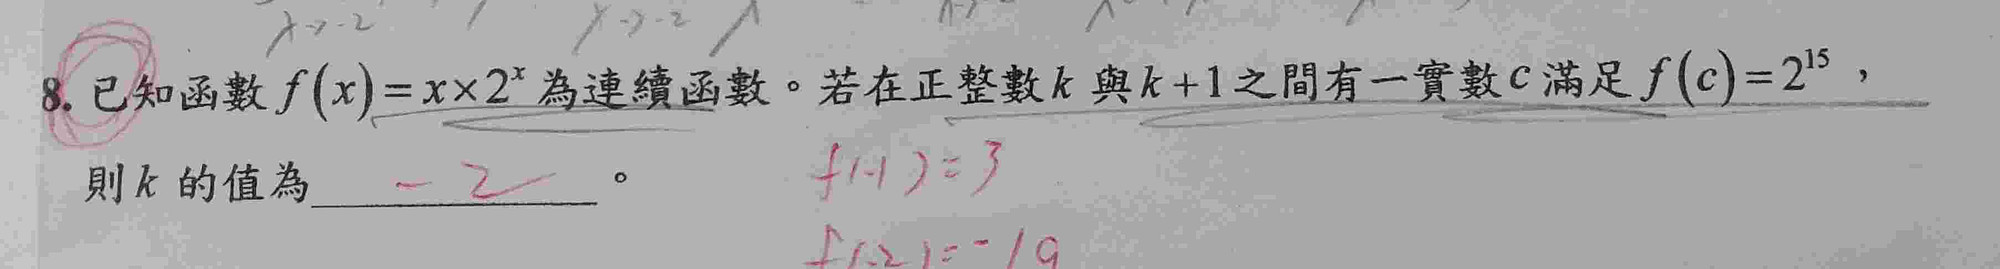 x→-2 x→-2
8. 已知函數 f(x)=x×2^x 為連續函數。若在正整數 k 與 k+1 之間有一實數 c 滿足 f(c)=2^15，
則 k 的值為 -2 。 f(-1)=3
f(-2)=-19